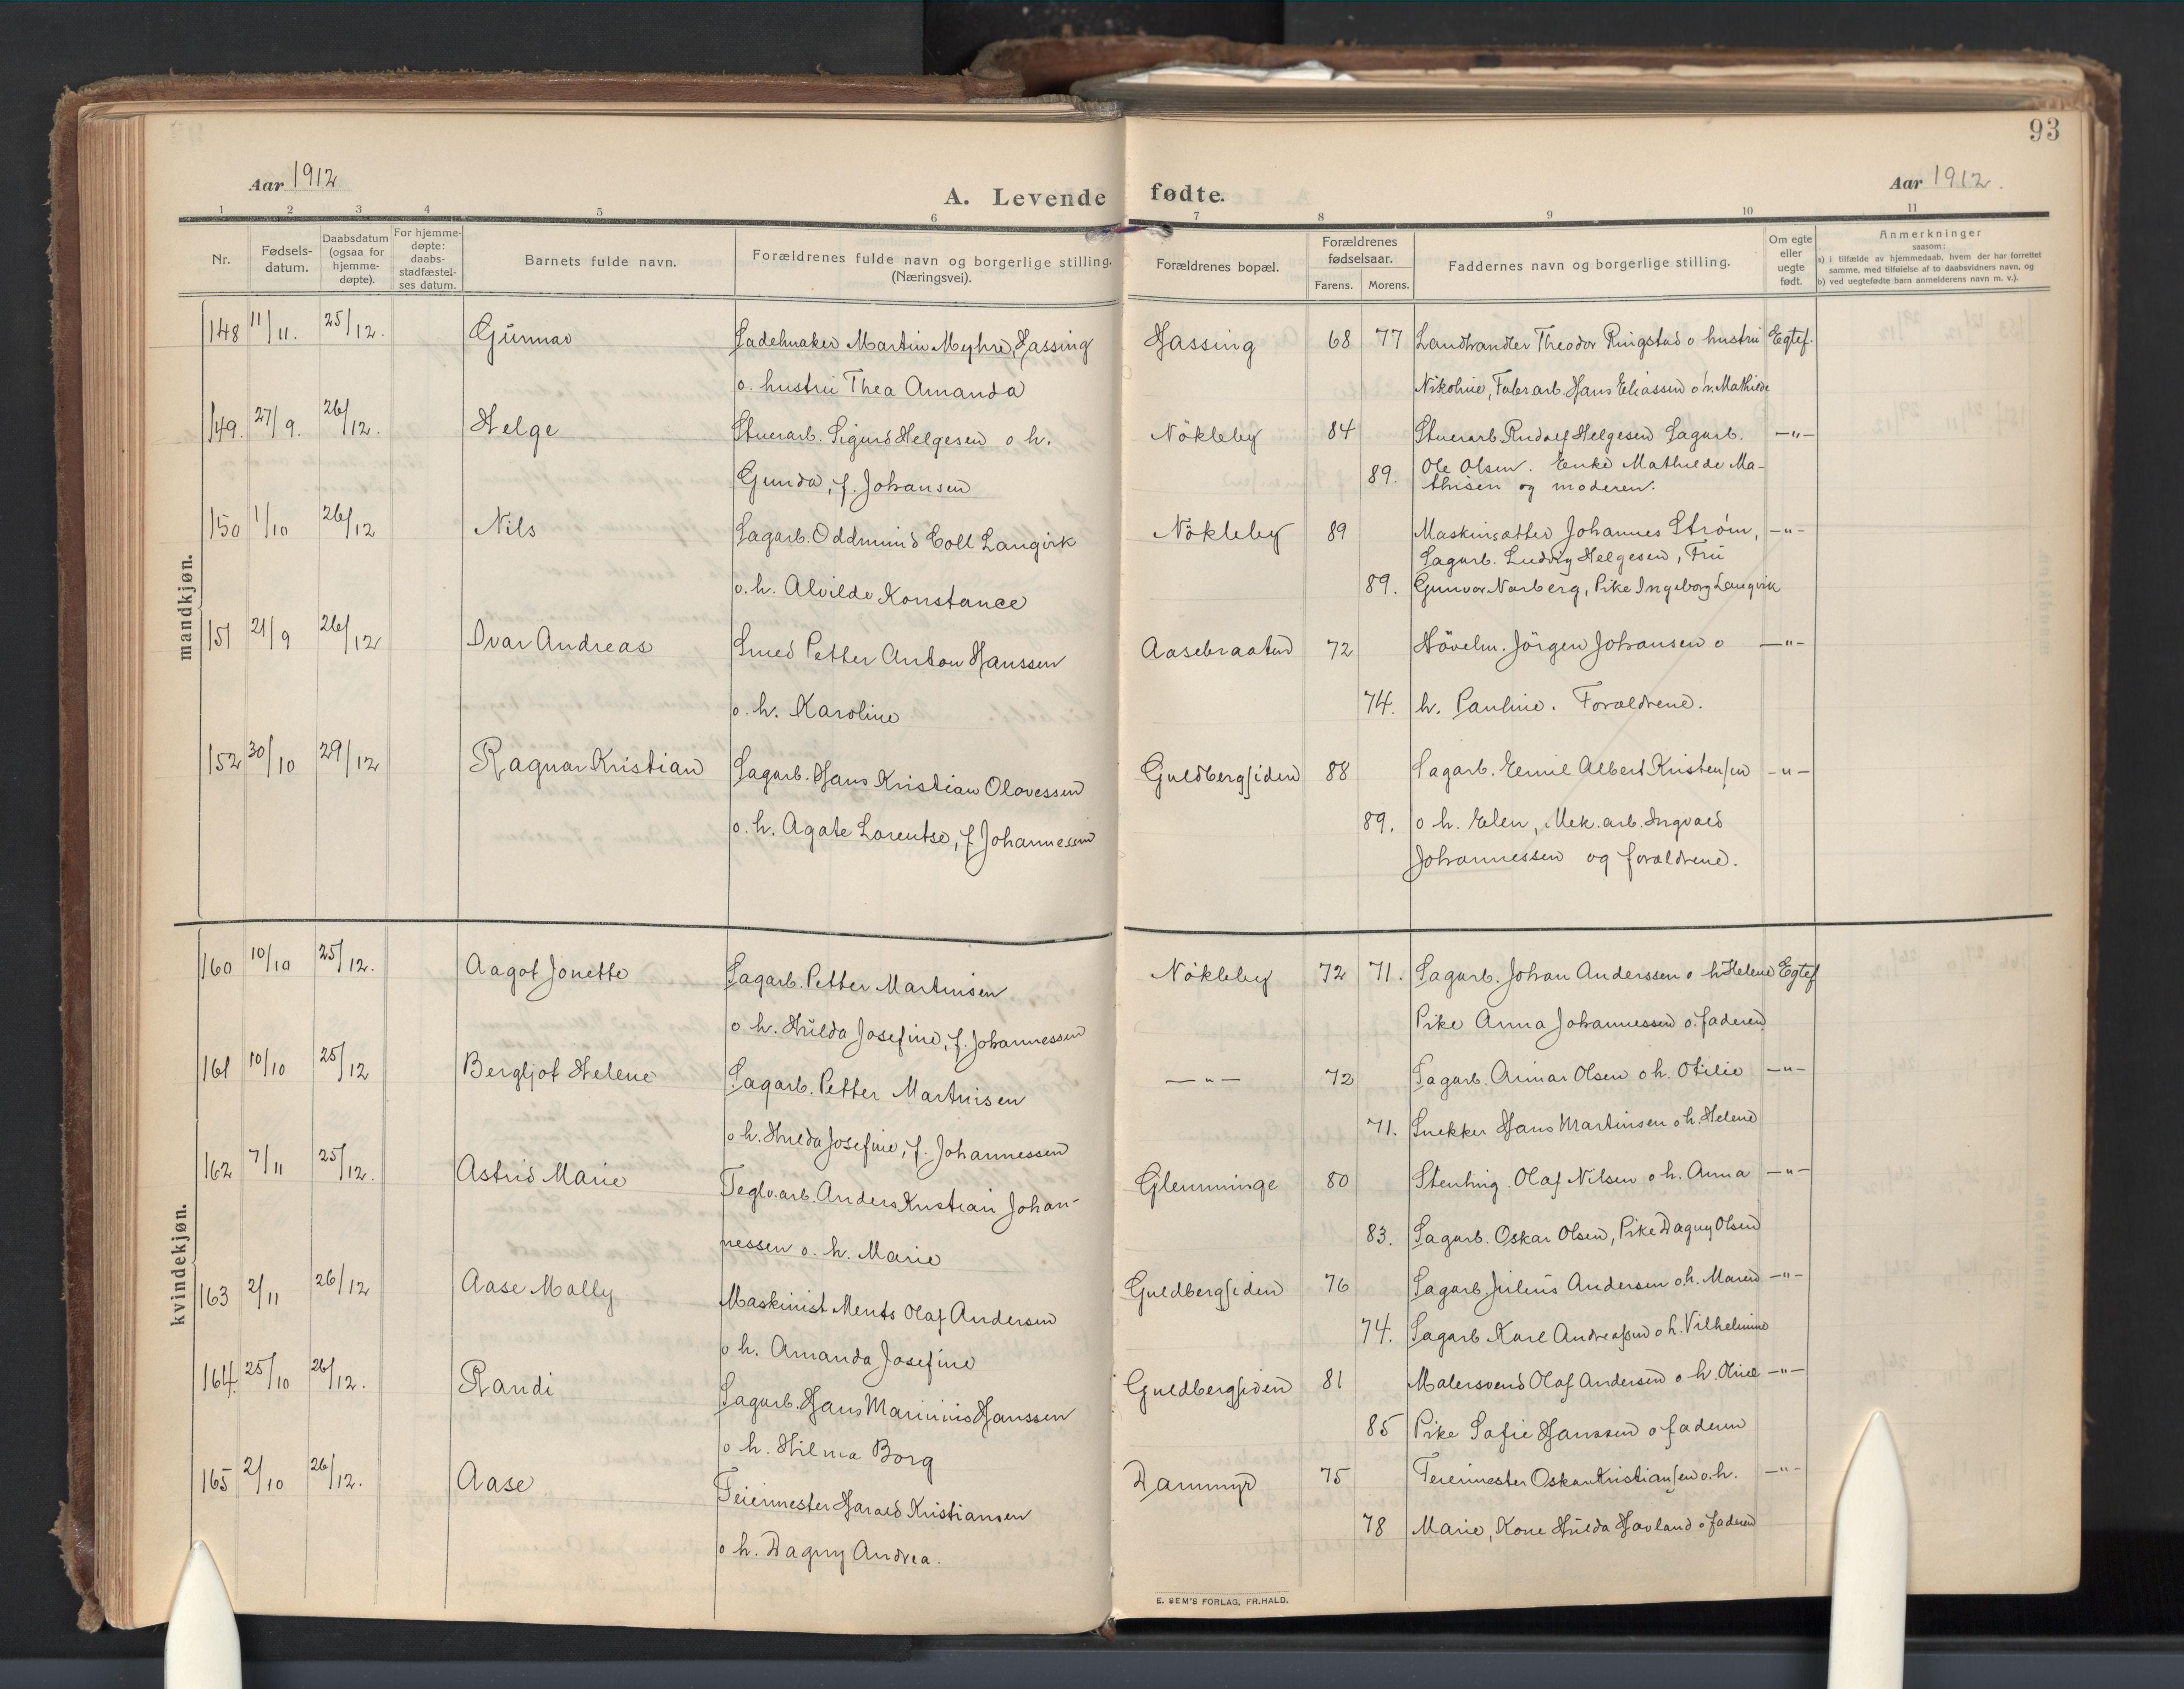 93
Aar 1912
A. Levende fødte.
Aar 1912.
1 2 3 4 5 6 7 8 9 10 11
Nr.
Fødsels-
datum.
Daabsdatum
(ogsaa for
hjemme-
døpte).
For hjemme-
døpte:
daabs-
stadfæstel-
ses datum.
Barnets fulde navn.
Forældrenes fulde navn og borgerlige stilling.
(Næringsvei).
Forældrenes bopæl.
Forældrenes
fødselsaar.
Farens. Morens.
Faddernes navn og borgerlige stilling.
Om egte
eller
uegte
født.
Anmerkninger
saasom:
a) i tilfælde av hjemmedaab, hvem der har forrettet
samme, med tilføielse af to daabsvidners navn, og
b) ved uegtefødte barn anmelderens navn m. v.).
mandkjøn.
148 11/11. 25/12. Gunnar Sadelmaker Martin Myhre, Hassing Hassing 68 77 Landhandler Theodor Ringstad o hustru Egtef.
o. hustru Thea Amanda Nikoline, Fabr arb. Hans Eliassen o h. Mathilde
149. 27/9. 26/12. Helge Stuerarb. Sigurd Helgesen o h. Nökleby 84 Stuerarb Rudolf Helgesen Sagarb. —"—
Gunda, f. Johansen 89. Ole Olsen. Enke Mathilde Ma-
thisen og moderen.
150 1/10 26/12 Nils Sagarb. Oddmund Coll Langvik Nökleby 89 Maskinsætter Johannes Strøm, —"—
Sagarb. Ludvig Helgesen, Fru
o. h. Alvilde Konstance 89. Gunvor Narberg, Pike Ingeborg Langvik
151 21/9 26/12 Ivar Andreas Smed Petter Anton Hanssen Aasebraaten 72 Hövelm. Jörgen Johansen o —"—
o. h. Karoline 74. h. Pauline. Forældrene.
152 30/10 29/12 Ragnar Kristian Sagarb. Hans Kristian Olavessen Guldbergsiden 88 Sagarb. Emil Albert Kristensen —"—
o. h. Agate Lorentse, f Johannessen 89. o h. Elen, Mek. arb. Ingvald
Johannessen og forældrene.
kvindekjøn.
160 10/10 25/12. Aagot Jonette Sagarb. Petter Martinsen Nökleby 72 71. Sagarb. Johan Anderssen o h Helene Egtef
o h. Hulda Josefine, f. Johannessen Pike Anna Johannessen o. faderen
161 10/10 25/12 Bergljot Helene Sagarb. Petter Martinsen —"— 72 Sagarb. Annar Olsen o h. Otilie —"—
o h. Hulda Josefine, f. Johannessen 71. Snekker Hans Martinsen o h. Helene
162 7/11 25/12. Astrid Marie Teglv.arb. Anders Kristian Johan- Glemminge 80 Stenhug. Olaf Nilsen o h. Anna —"—
nessen o. h. Marie 83. Sagarb. Oskar Olsen, Pike Dagny Olsen
163 2/11 26/12 Aase Molly Maskinist Ments Olaf Andersen Guldbergsiden 76 Sagarb. Julius Andersen o.h. Maren —"—
o h. Amanda Josefine 74. Sagarb Karl Andreassen o h. Vilhelmine
164. 25/10 26/12. Randi Sagarb. Hans Marinius Hanssen Guldbergsiden 81 Malersvend Olaf Andersen o h. —"—
o h. Hilma Borg 85 Pike Sofie Hanssen o faderen
165 2/10 26/12. Aase. Feiermester Harald Kristiansen Dammyr 75 Feiermester Oskar Kristiansen o. h. —"—
o h. Dagny Andrea. 78 Marie, Kone Hulda Havland o faderen
E. SEM'S FORLAG, FR.HALD.